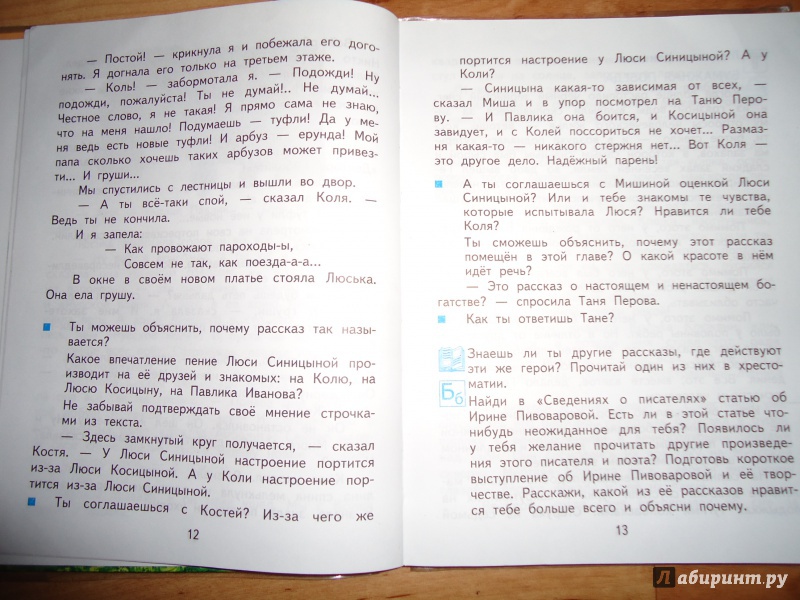 — Постой! — крикнула я и побежала его дого-
нять. Я догнала его только на третьем этаже.
— Коль! — забормотала я. — Подожди! Ну
подожди, пожалуйста! Ты не думай!.. Не думай...
Честное слово, я не такая! Я прямо сама не знаю,
что на меня нашло! Подумаешь — туфли! Да у ме-
ня ведь есть новые туфли! И арбуз — ерунда! Мой
папа сколько хочешь таких арбузов может привез-
ти... И груши...
Мы спустились с лестницы и вышли во двор.
— А ты всё-таки спой, — сказал Коля. —
Ведь ты не кончила.
И я запела:
— Как провожают пароходы-ы,
Совсем не так, как поезда-а-а...
В окне в своём новом платье стояла Люська.
Она ела грушу.
Ты можешь объяснить, почему рассказ так назы-
вается?
Какое впечатление пение Люси Синицыной про-
изводит на её друзей и знакомых: на Колю, на
Люсю Косицыну, на Павлика Иванова?
Не забывай подтверждать своё мнение строчка-
ми из текста.
— Здесь замкнутый круг получается, — сказал
Костя. — У Люси Синицыной настроение портится
из-за Люси Косицыной. А у Коли настроение пор-
тится из-за Люси Синицыной.
Ты соглашаешься с Костей? Из-за чего же
12
портится настроение у Люси Синицыной? А у
Коли?
— Синицына какая-то зависимая от всех, —
сказал Миша и в упор посмотрел на Таню Перо-
ву. — И Павлика она боится, и Косицыной она
завидует, и с Колей поссориться не хочет... Размаз-
ня какая-то — никакого стержня нет... Вот Коля —
это другое дело. Надёжный парень!
А ты соглашаешься с Мишиной оценкой Люси
Синицыной? Или и тебе знакомы те чувства,
которые испытывала Люся? Нравится ли тебе
Коля?
Ты сможешь объяснить, почему этот рассказ
помещён в этой главе? О какой красоте в нём
идёт речь?
— Это рассказ о настоящем и ненастоящем бо-
гатстве? — спросила Таня Перова.
Как ты ответишь Тане?
Знаешь ли ты другие рассказы, где действуют
эти же герои? Прочитай один из них в хресто-
матии.
Бб
Найди в «Сведениях о писателях» статью об
Ирине Пивоваровой. Есть ли в этой статье что-
нибудь неожиданное для тебя? Появилось ли
у тебя желание прочитать другие произведе-
ния этого писателя и поэта? Подготовь короткое
выступление об Ирине Пивоваровой и её твор-
честве. Расскажи, какой из её рассказов нравит-
ся тебе больше всего и объясни почему.
13
Лабиринт.ру